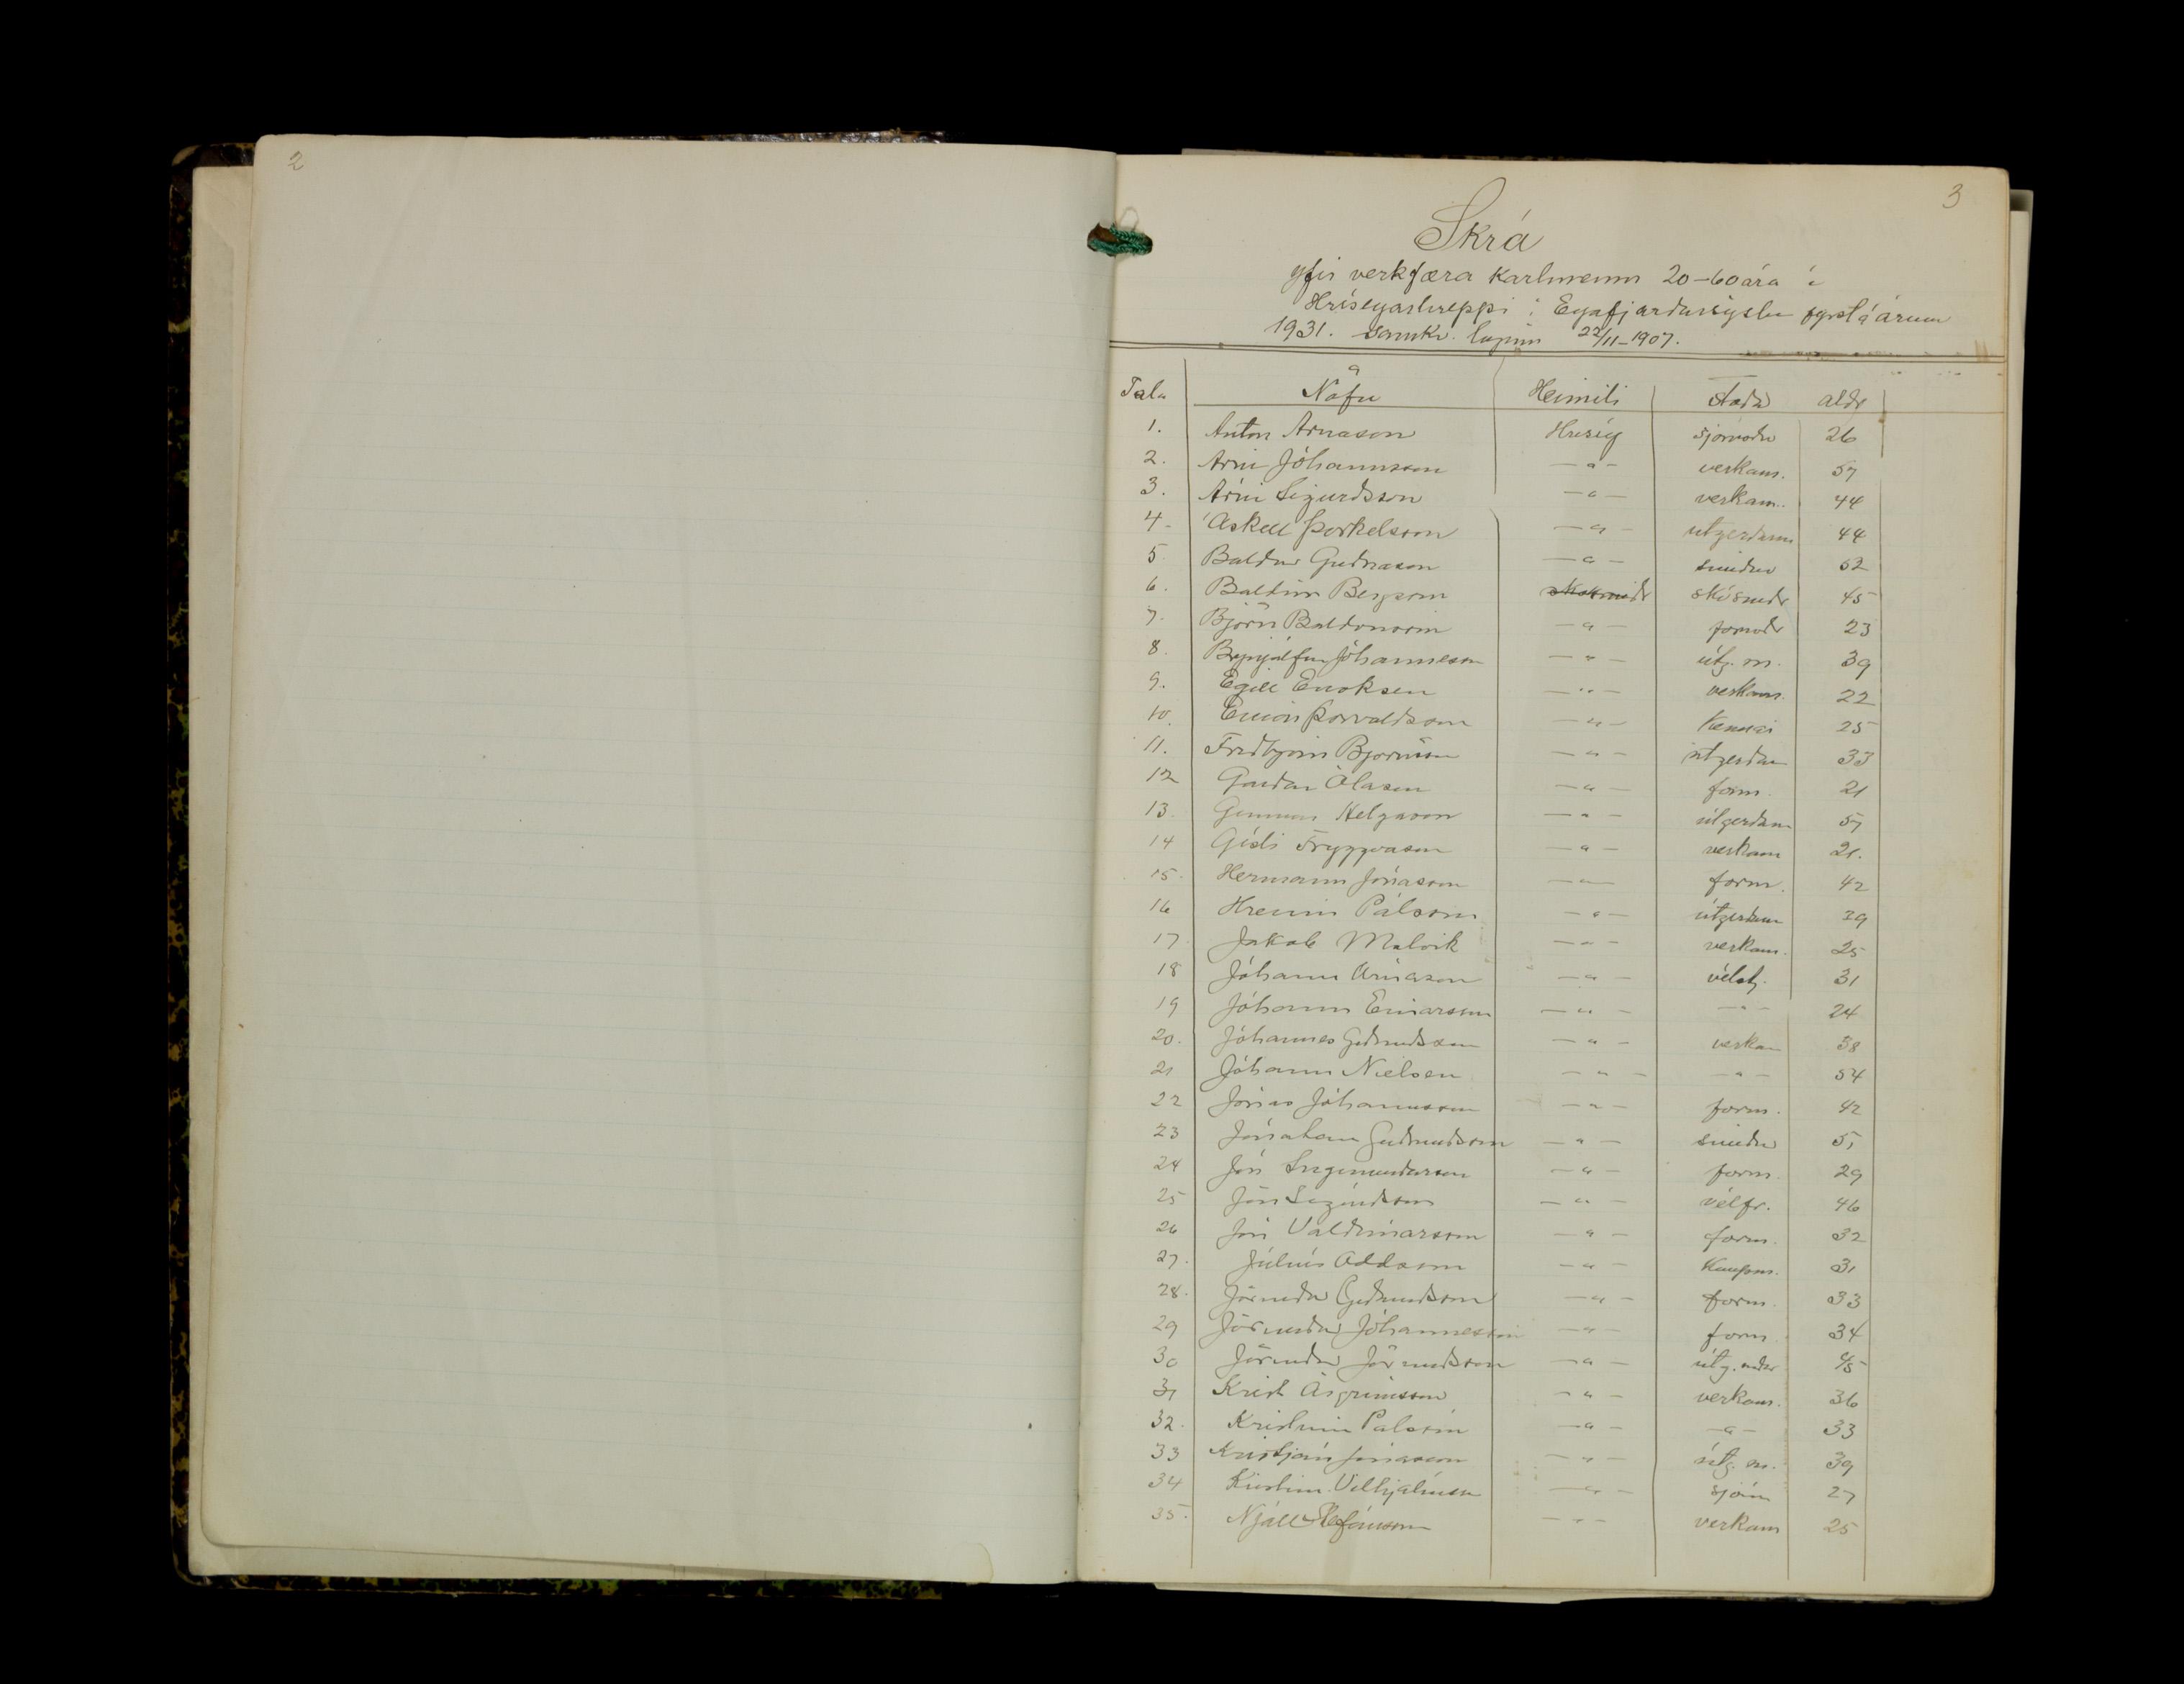 2
3
Skrá
yfir verkfæra karlmenn 20-60 ára í
Hríseyarhreppi í Eyafjardarsýslu á árinu
1931. samkv. lögum 22/11-1907.
Tala Nöfn Heimili Stada aldr
1. Anton Arnason Hrísey sjómadr 26
2. Arni Jóhannsson —"— verkam. 57
3. Arni Sigurdsson —"— verkam. 44
4. Áskell Þorkelsson —"— útgerdarm 44
5. Baldur Gudnason —"— smidur 52
6. Baldvin Bergsson skósmidr skósmidr 45
7. Björn Baldvinsson —"— formadr 23
8. Brynjólfur Jóhannesson —"— útg. m. 39
9. Egill Enoksen —"— verkam. 22
10. Einar Þorvaldsson —"— Kennari 25
11. Fridbjörn Bjornsson —"— útgerdam 33
12 Gardar Ólason —"— form. 21
13. Gunnar Helgason —"— útgerdam 57
14 Gísli Tryggvason —"— verkam 21.
15. Hermann Jónasson —"— form. 42
16 Hreinn Pálsson —"— útgerdam 29
17 Jakob Malvik —"— verkam. 25
18 Jóhann Arnason —"— vélstj. 31
19 Jóhann Einarsson —"— —"— 24
20. Jóhannes Gudmundsson —"— verkam 38
21 Jóhann Nielsen —"— —"— 54
22 Jónas Jóhannsson —"— form. 42
23 Jónatan Gudmundsson —"— smidur 51
24 Jón Ingimundarson —"— form. 29
25 Jón Sigurdsson —"— vélfr. 46
26 Jón Valdimarsson —"— form. 32
27. Júlíus Oddsson —"— Kaupm. 31
28. Jörundur Gudmundsson —"— form. 33
29 Jörundur Jóhannesson —"— form 34
30 Jörundur Jörundsson —"— útg.madur 45
31 Krist Ásgrimsson —"— verkam. 36
32. Kristinn Palsson —"— —"— 33
33 Kristján Jónasson —"— útg. m. 39
34 Kristinn Vilhjalmsson —"— sjóm 27
35. Njáll Stefánsson —"— verkam 25